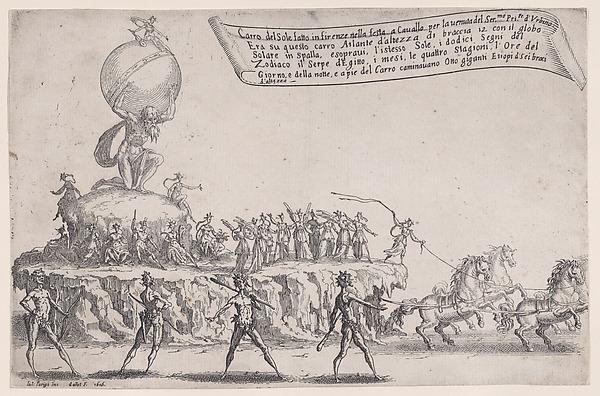 Carro del Sole fatto in firenze nella festa a Cavallo per la venuta del Ser.mo Pri.pe d'Urbino
Era su questo carro Atlante d'altezza di braccia 12 con il globo
Solare in spalla, esopravi, l'istesso Sole, i dodici Segni del
Zodiaco il Serpe d'Egitto, i mesi, le quattro Stagioni, l'Ore del
Giorno, e della notte, e a pie del Carro caminavano Otto giganti Etiopi d sei braci
d'altezza
Iul. Parigi Inv. Callot F. 1616.